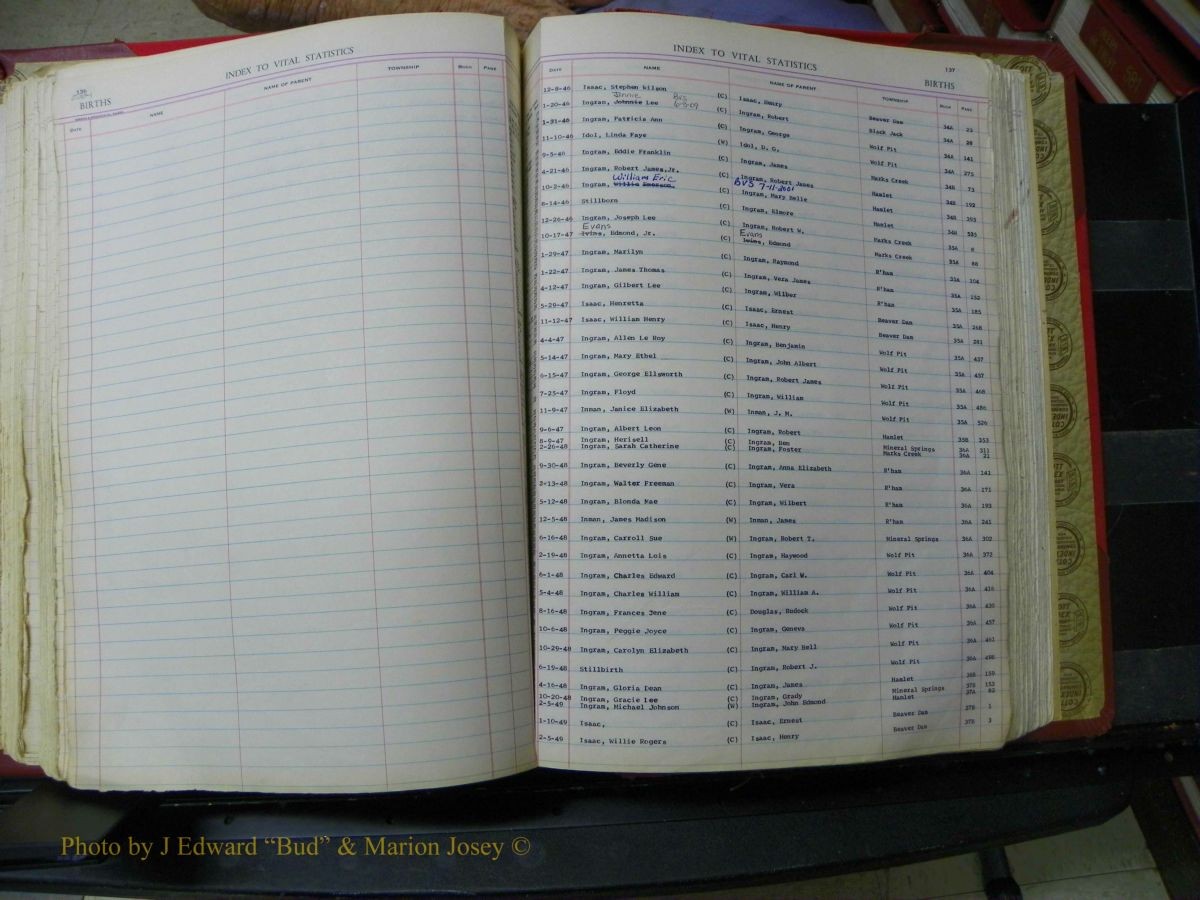 136
INDEX TO VITAL STATISTICS
BIRTHS
DATE NAME NAME OF PARENT TOWNSHIP BOOK PAGE
INDEX TO VITAL STATISTICS 137
BIRTHS
DATE NAME NAME OF PARENT TOWNSHIP BOOK PAGE
12-8-46 Isaac, Stephen Wilson (C) Isaac, Henry Beaver Dam 34A 23
Jennie BVS
1-20-46 Ingram, Johnnie Lee 6-5-09 (C) Ingram, Robert Black Jack 34A 28
1-31-46 Ingram, Patricia Ann (C) Ingram, George Wolf Pit 34A 141
11-10-46 Idol, Linda Faye (W) Idol, D. G. Wolf Pit 34A 275
9-5-46 Ingram, Eddie Franklin (C) Ingram, James Marks Creek 34B 73
4-21-46 Ingram, Robert James, Jr. (C) Ingram, Robert James Hamlet 34B 192
William Eric BVS 7-11-2001
10-2-46 Ingram, Willie Emerson (C) Ingram, Mary Belle Hamlet 34B 393
8-14-46 Stillborn (C) Ingram, Elmore Hamlet 34B 595
12-26-46 Ingram, Joseph Lee (C) Ingram, Robert W. Marks Creek 35A 6
Evans Evans
10-17-47 Ivins, Edmond, Jr. (C) Ivins, Edmond Marks Creek 35A 88
1-29-47 Ingram, Marilyn (C) Ingram, Raymond R'ham 35A 104
1-22-47 Ingram, James Thomas (C) Ingram, Vera James R'ham 35A 152
4-12-47 Ingram, Gilbert Lee (C) Ingram, Wilber R'ham 35A 185
5-29-47 Isaac, Henretta (C) Isaac, Ernest Beaver Dam 35A 268
11-12-47 Isaac, William Henry (C) Isaac, Henry Beaver Dam 35A 281
4-4-47 Ingram, Allen Le Roy (C) Ingram, Benjamin Wolf Pit 35A 437
5-14-47 Ingram, Mary Ethel (C) Ingram, John Albert Wolf Pit 35A 457
6-15-47 Ingram, George Ellsworth (C) Ingram, Robert James Wolf Pit 35A 468
7-25-47 Ingram, Floyd (C) Ingram, William Wolf Pit 35A 486
11-9-47 Inman, Janice Elizabeth (W) Inman, J. M. Wolf Pit 35A 526
9-6-47 Ingram, Albert Leon (C) Ingram, Robert Hamlet 35B 353
8-9-47 Ingram, Herisell (C) Ingram, Ben Mineral Springs 36A 311
2-26-48 Ingram, Sarah Catherine (C) Ingram, Foster Marks Creek 36A 21
9-30-48 Ingram, Beverly Gene (C) Ingram, Anna Elizabeth R'ham 36A 141
2-13-48 Ingram, Walter Freeman (C) Ingram, Vera R'ham 36A 171
5-12-48 Ingram, Blonda Mae (C) Ingram, Wilbert R'ham 36A 193
12-5-48 Inman, James Madison (W) Inman, James R'ham 36A 241
6-16-48 Ingram, Carroll Sue (W) Ingram, Robert T. Mineral Springs 36A 302
2-19-48 Ingram, Annetta Lois (C) Ingram, Haywood Wolf Pit 36A 372
6-1-48 Ingram, Charles Edward (C) Ingram, Carl W. Wolf Pit 36A 404
5-4-48 Ingram, Charles William (C) Ingram, William A. Wolf Pit 36A 416
8-16-48 Ingram, Frances Jene (C) Douglas, Budock Wolf Pit 36A 430
10-6-48 Ingram, Peggie Joyce (C) Ingram, Geneva Wolf Pit 36A 457
10-29-48 Ingram, Carolyn Elizabeth (C) Ingram, Mary Hell Wolf Pit 36A 461
6-19-48 Stillbirth (C) Ingram, Robert J. Wolf Pit 36A 498
4-16-48 Ingram, Gloria Dean (C) Ingram, James Hamlet 36B 159
10-20-48 Ingram, Gracie Lee (C) Ingram, Grady Mineral Springs 37B 153
2-5-49 Ingram, Michael Johnson (W) Ingram, John Edmond Hamlet 37A 82
1-10-49 Isaac, (C) Isaac, Ernest Beaver Dam 37B 1
2-5-49 Isaac, Willie Rogers (C) Isaac, Henry Beaver Dam 37B 3
Photo by J Edward "Bud" & Marion Josey ©